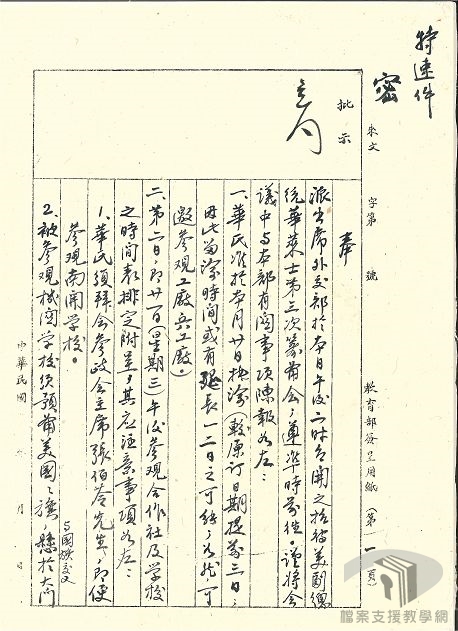 特速件
密
來文 字第 號
教育部簽呈用紙（第一頁）
批示
奉
派出席外交部於本日午後二時召開之招待美副總
統華萊士第三次籌備會，遵準時前往。謹將會
議中与本部有関事項陳報如左：
一、華氏准於本月廿日抵渝（較原訂日期提前三日，
因此留渝時間或有延長一二日之可能，如此可
邀參观工廠兵工廠。
二、第二日，即廿一日（星期三）午後參观合作社及學校
之時間表排定附呈，其應注意事項如左：
1、華氏須拜会參政会主席張伯苓先生，即便
參观南開學校。
2、被參观機関學校須預備美國之旗，懸於大門
与國旗交叉
中華民國 年 月 日
檔案支援教學網